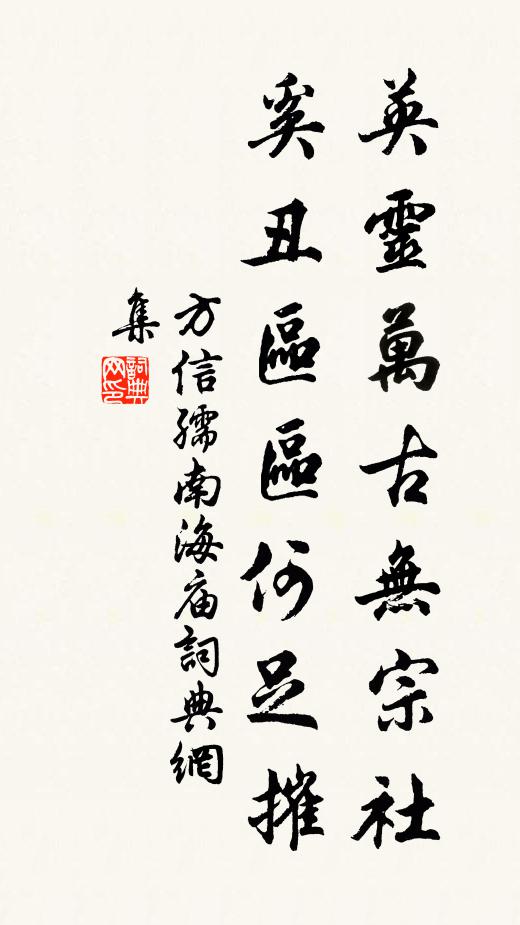 英靈萬古無宗社
奚丑區區何足摧
方信孺南海庙詞典網
集
詞典
网印